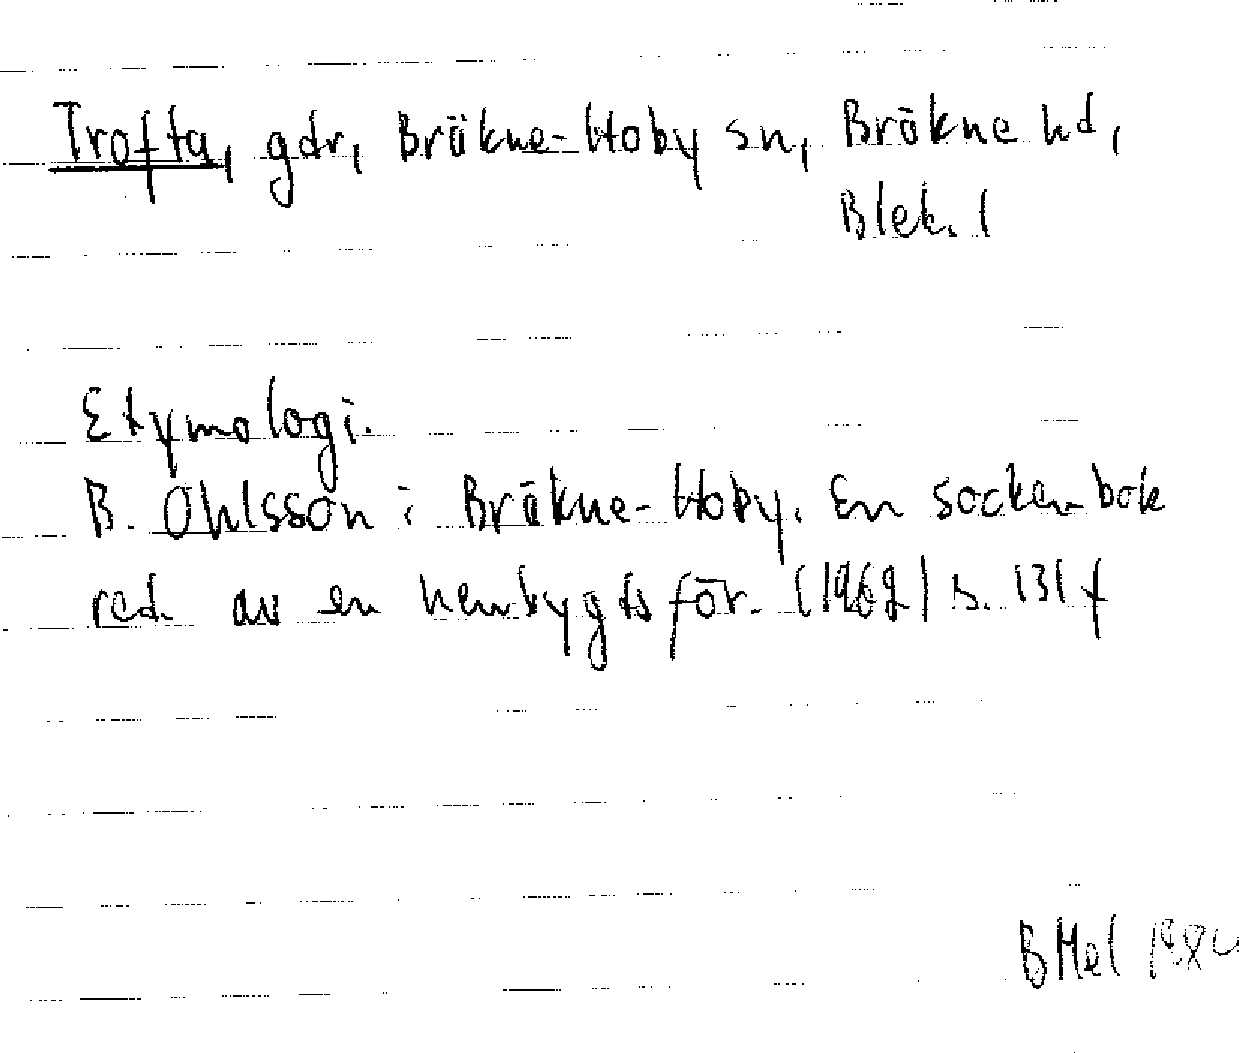 Trofta, gdr, Bräkne-Hoby sn, Bräkne hd,
Blek. l
Etymologi.
B. Ohlsson i Bräkne-Hoby. En sockenbok
red. av en hembygdsför. (1962) s. 131 f
BMel